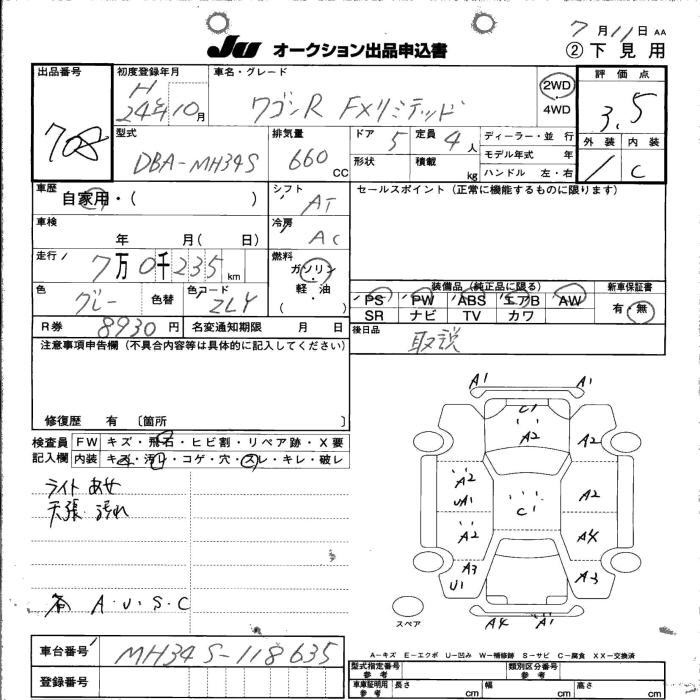 7月11日 AA
JU オークション出品申込書
② 下見用
出品番号
708
初度登録年月
H
24年10月
車名・グレード
ワゴンR FXリミテッド
2WD
4WD
評価点
3.5
外装 内装
/ C
型式
DBA-MH34S
排気量
660 CC
ドア 5
定員 4人
形状
積載 kg
ディーラー・並 行
モデル年式 年
ハンドル 左・右
車歴
自家用・( )
シフト
AT
セールスポイント(正常に機能するものに限ります)
車検
年 月( 日)
冷房
AC
走行
7万0千235km
燃料
ガソリン
軽・油
( )
色
グレー
色替
色コード
ZLY
装備品(純正品に限る)
PS PW ABS エアB AW
SR ナビ TV カワ
新車保証書
有・無
R券 8930円
名変通知期限 月 日
後日品
取説
注意事項申告欄(不具合内容等は具体的に記入してください)
修復歴 有 〔箇所 〕
検査員
記入欄
FW キズ・飛石・ヒビ割・リペア跡・X要
内装 キズ・汚レ・コゲ・穴・スレ・キレ・破レ
ライト あせ
天張 汚れ
各 A・U・S・C
A1 A1
C1
A2 A2
A2
UA1
C1
A2
A2
A4
A3
U1
A3
スペア
A4 A1
A-キズ E-エクボ U-凹み W-補修跡 S-サビ C-腐食 XX-交換済
車台番号
MH34S-118635
登録番号
型式指定番号
参考
類別区分番号
参考
車庫証明用
参考
長さ cm 幅 cm 高さ cm